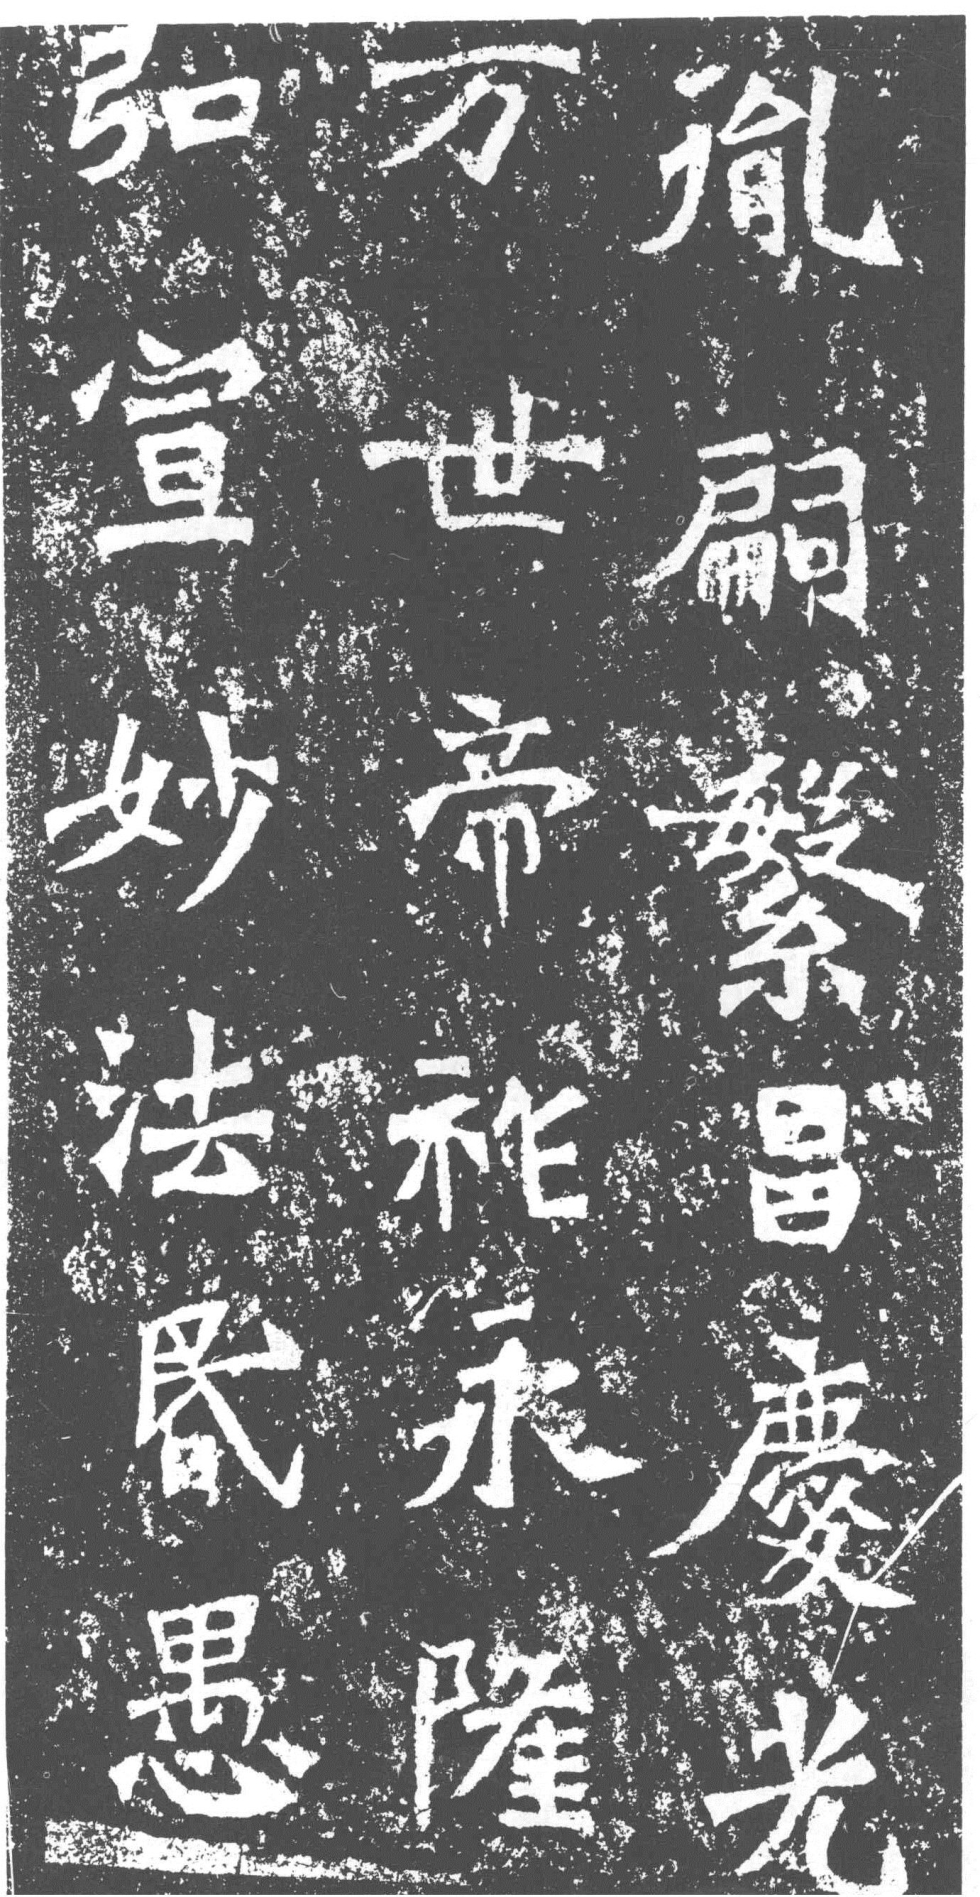 胤嗣繁昌慶光
万世帝祚永隆
弘宣妙法昬愚